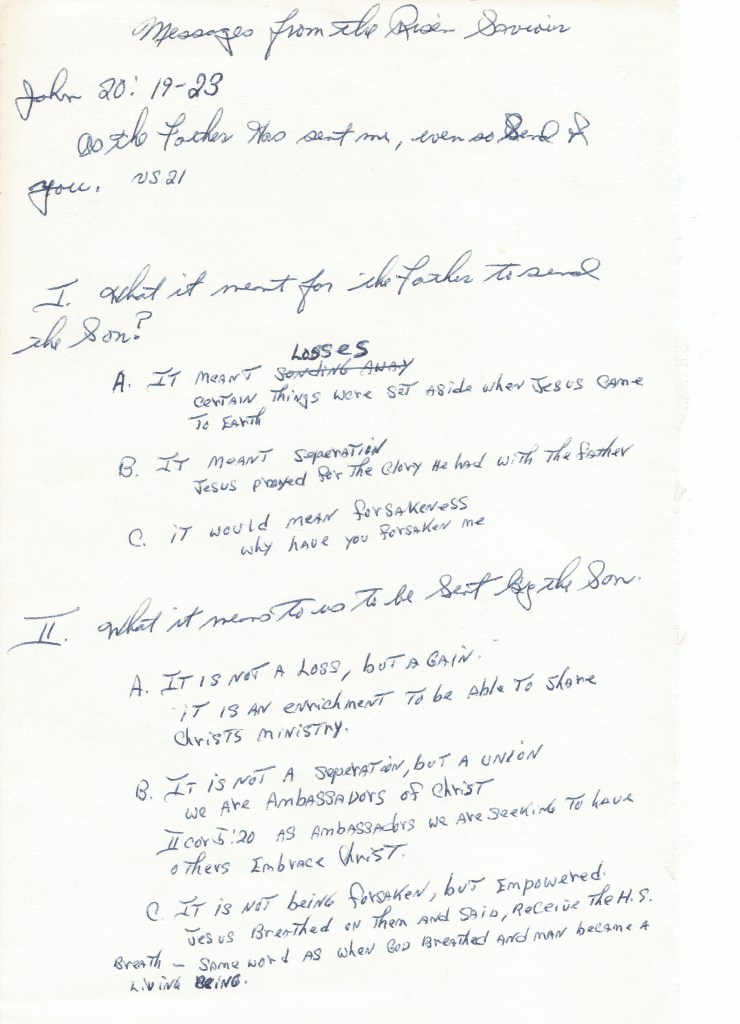 Messages from the Risen Saviour
John 20: 19-23
As the Father Has sent me, even so Send I
you. vs 21
I. What it meant for the Father to send
the Son?
Losses
A. IT MEANT SENDING AWAY
CERTAIN Things were SET ASide when Jesus CAME
To EARTh
B. IT MEANT SeperATION
Jesus prayed for The Glory He had with The father
C. iT would MEAN forsAKENESS
why have you forsaken me
II. What it means to us to be Sent by the Son.
A. IT IS NOT A Loss, but A GAIN.
iT IS AN enrichment To be Able To Share
ChrisTs MINISTRY.
B. IT is NOT A SeperATION, but A UNION
we Are AmbASSADors of Christ
II cor 5:20 AS AmbASSAdors we Are Seeking To have
others Embrace Christ.
C. IT is NOT being forsaken, but Empowered.
Jesus Breathed on Them And Said, Receive The H.S.
Breath - Same word AS when GOD Breathed AND man became A
Living BEING.